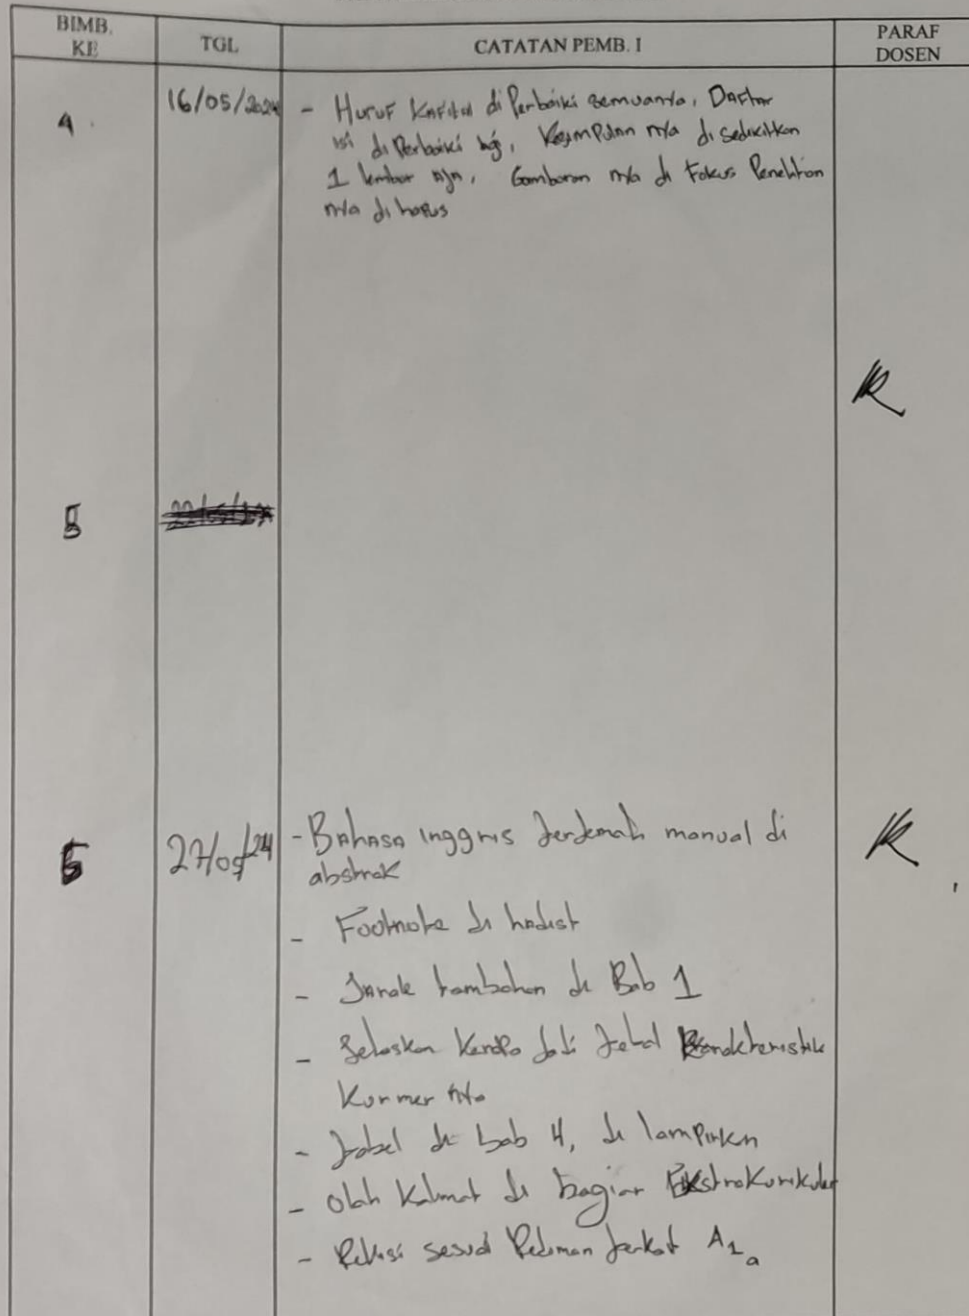 BIMB. KE TGL CATATAN PEMB. I PARAF DOSEN
4. 16/05/2024 - Huruf Kapital di Perbaiki semuanya, Daftar
isi di Perbaiki lg, Kesimpulan nya di sedikitkan
1 lembar aja, Gambaran nya di Fokus Penelitian
nya di hapus
5
5 27/05/24 - Bahasa inggris terjemah manual di
abstrak
- Footnote di hadist
- Jarak tambahan di Bab 1
- Jelaskan Kenapa jadi tabel Karakteristik
Kurmer
- Tabel di bab 4, di lampirkan
- Olah Kalimat di bagian Ekstrakurikuler
- Revisi sesuai Pedoman